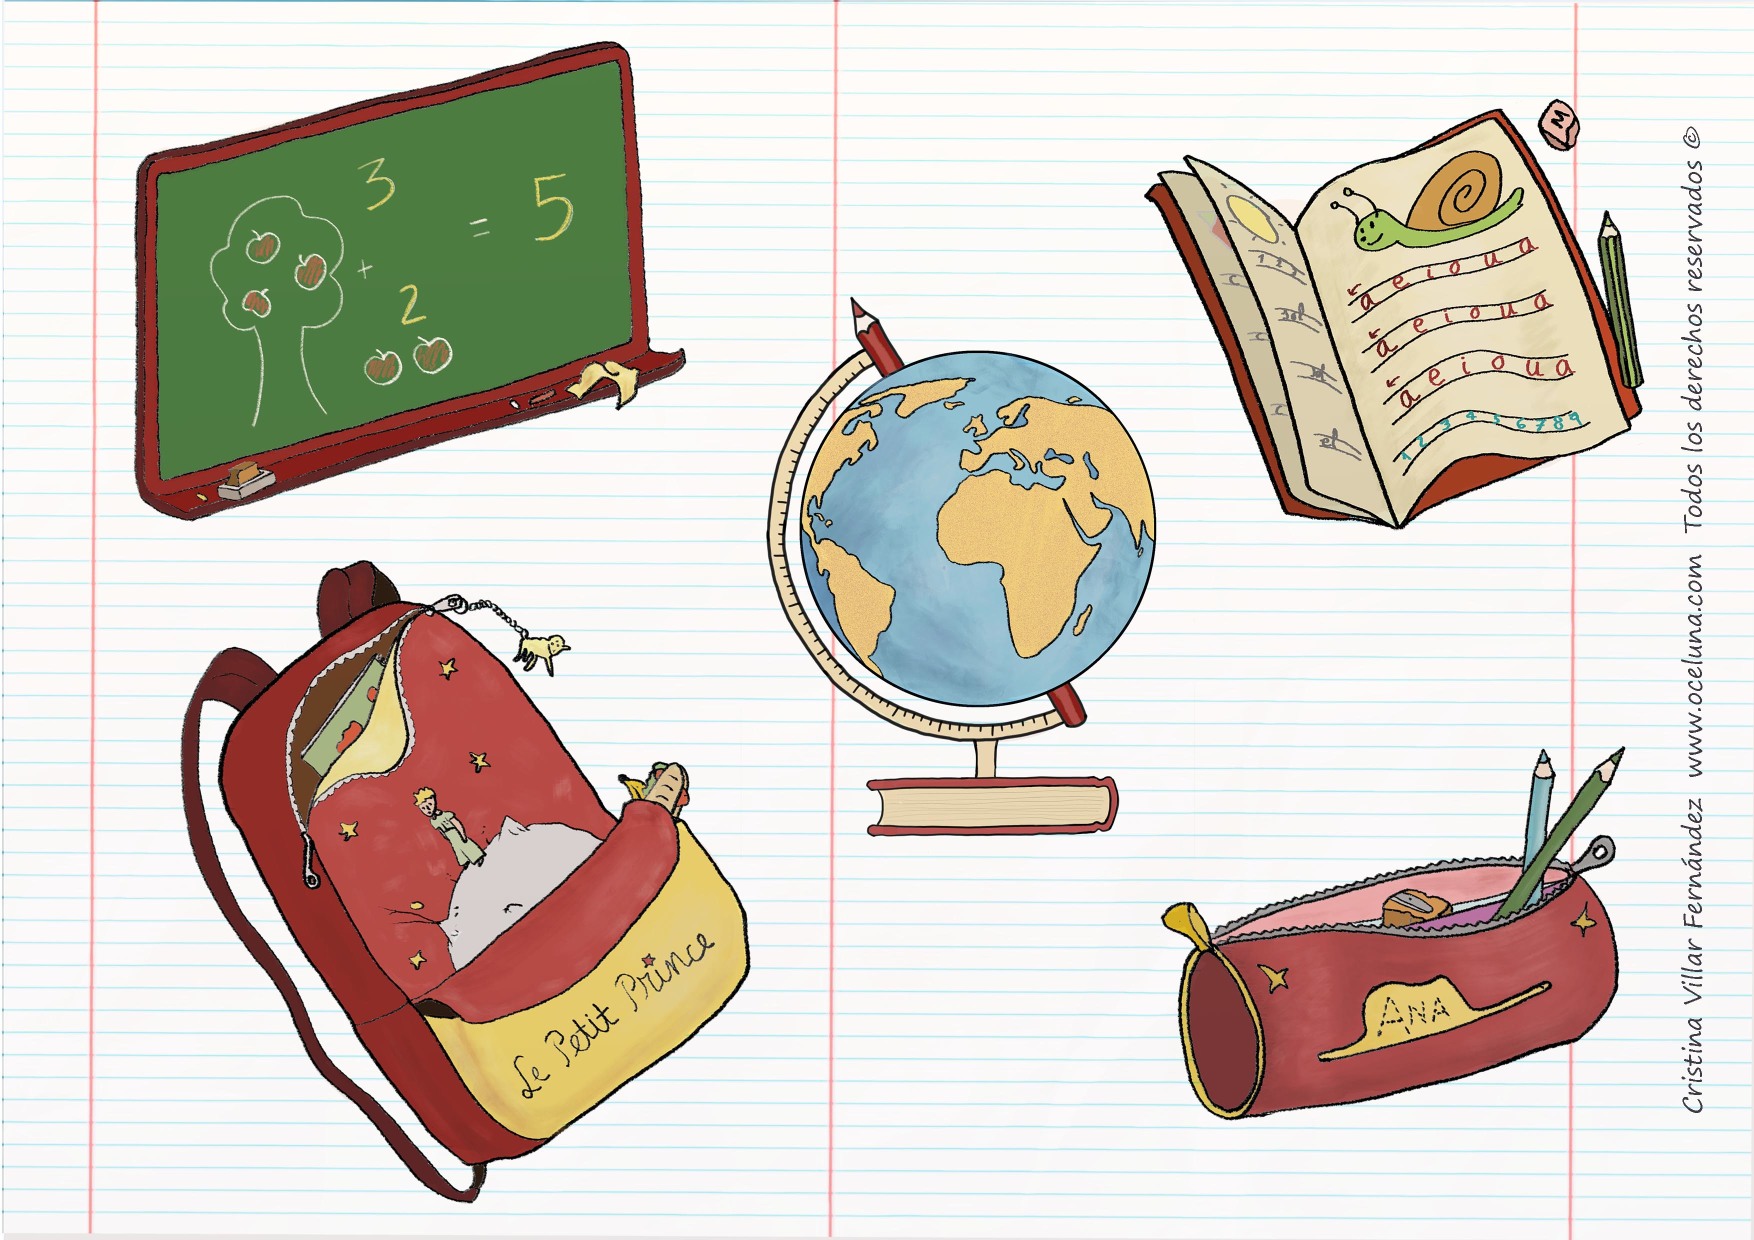 3
+
= 5
2
M
a e i o u a
a e i o u a
a e i o u a
1 2 3 4 5 6 7 8 9
1 2 3
sol
el
Le Petit Prince
ANA
Cristina Villar Fernández www.oceluna.com Todos los derechos reservados ©